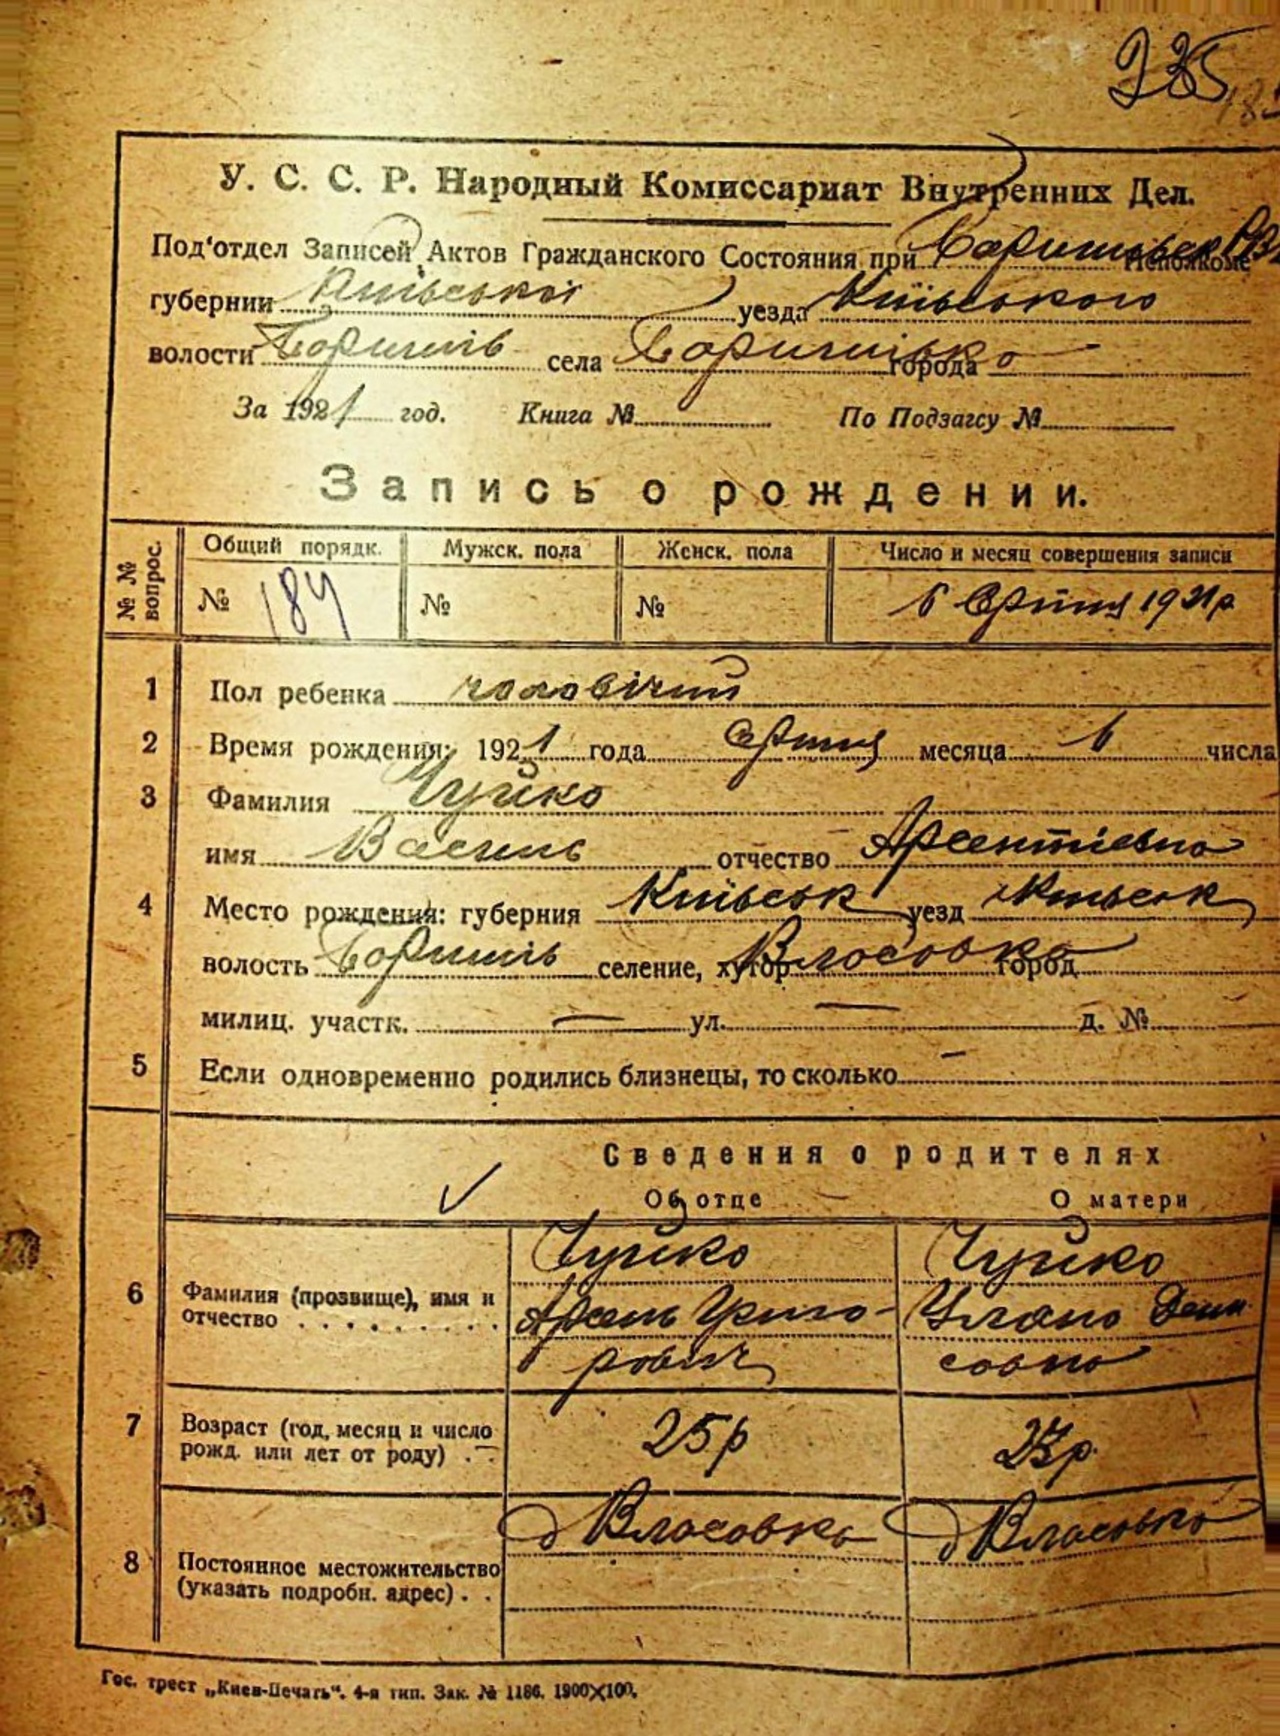 235
У. С. С. Р. Народный Комиссариат Внутренних Дел.
Под'отдел Записей Актов Гражданского Состояния при Исполкоме
губернии Київської уезда Київського
волости Бориспіль села города
За 1921 год. Книга № По Подзагсу №
Запись о рождении.
№ № вопрос. Общий порядк. Мужск. пола Женск. пола Число и месяц совершения записи
№ 184 № № 6 Серпня 1921р
1 Пол ребенка чоловічий
2 Время рождения: 1921 года Серпня месяца 6 числа
3 Фамилия Чуйко
имя Василь отчество Арсентієвна
4 Место рождения: губерния Київськ уезд Київськ
волость Бориспіль селение, хутор Власовка город
милиц. участк. — ул. — д. №
5 Если одновременно родились близнецы, то сколько —
Сведения о родителях
Об отце О матери
Чуйко Чуйко
6 Фамилия (прозвище), имя и отчество Арсень Григо- Уляна Дени
рович совна
7 Возраст (год, месяц и число рожд. или лет от роду) 25р 23р.
8 Постоянное местожительство (указать подробн. адрес) д Власовка д Власовка
Гос. трест „Киев-Печать“. 4-я тип. Зак. № 1186. 1900×100.